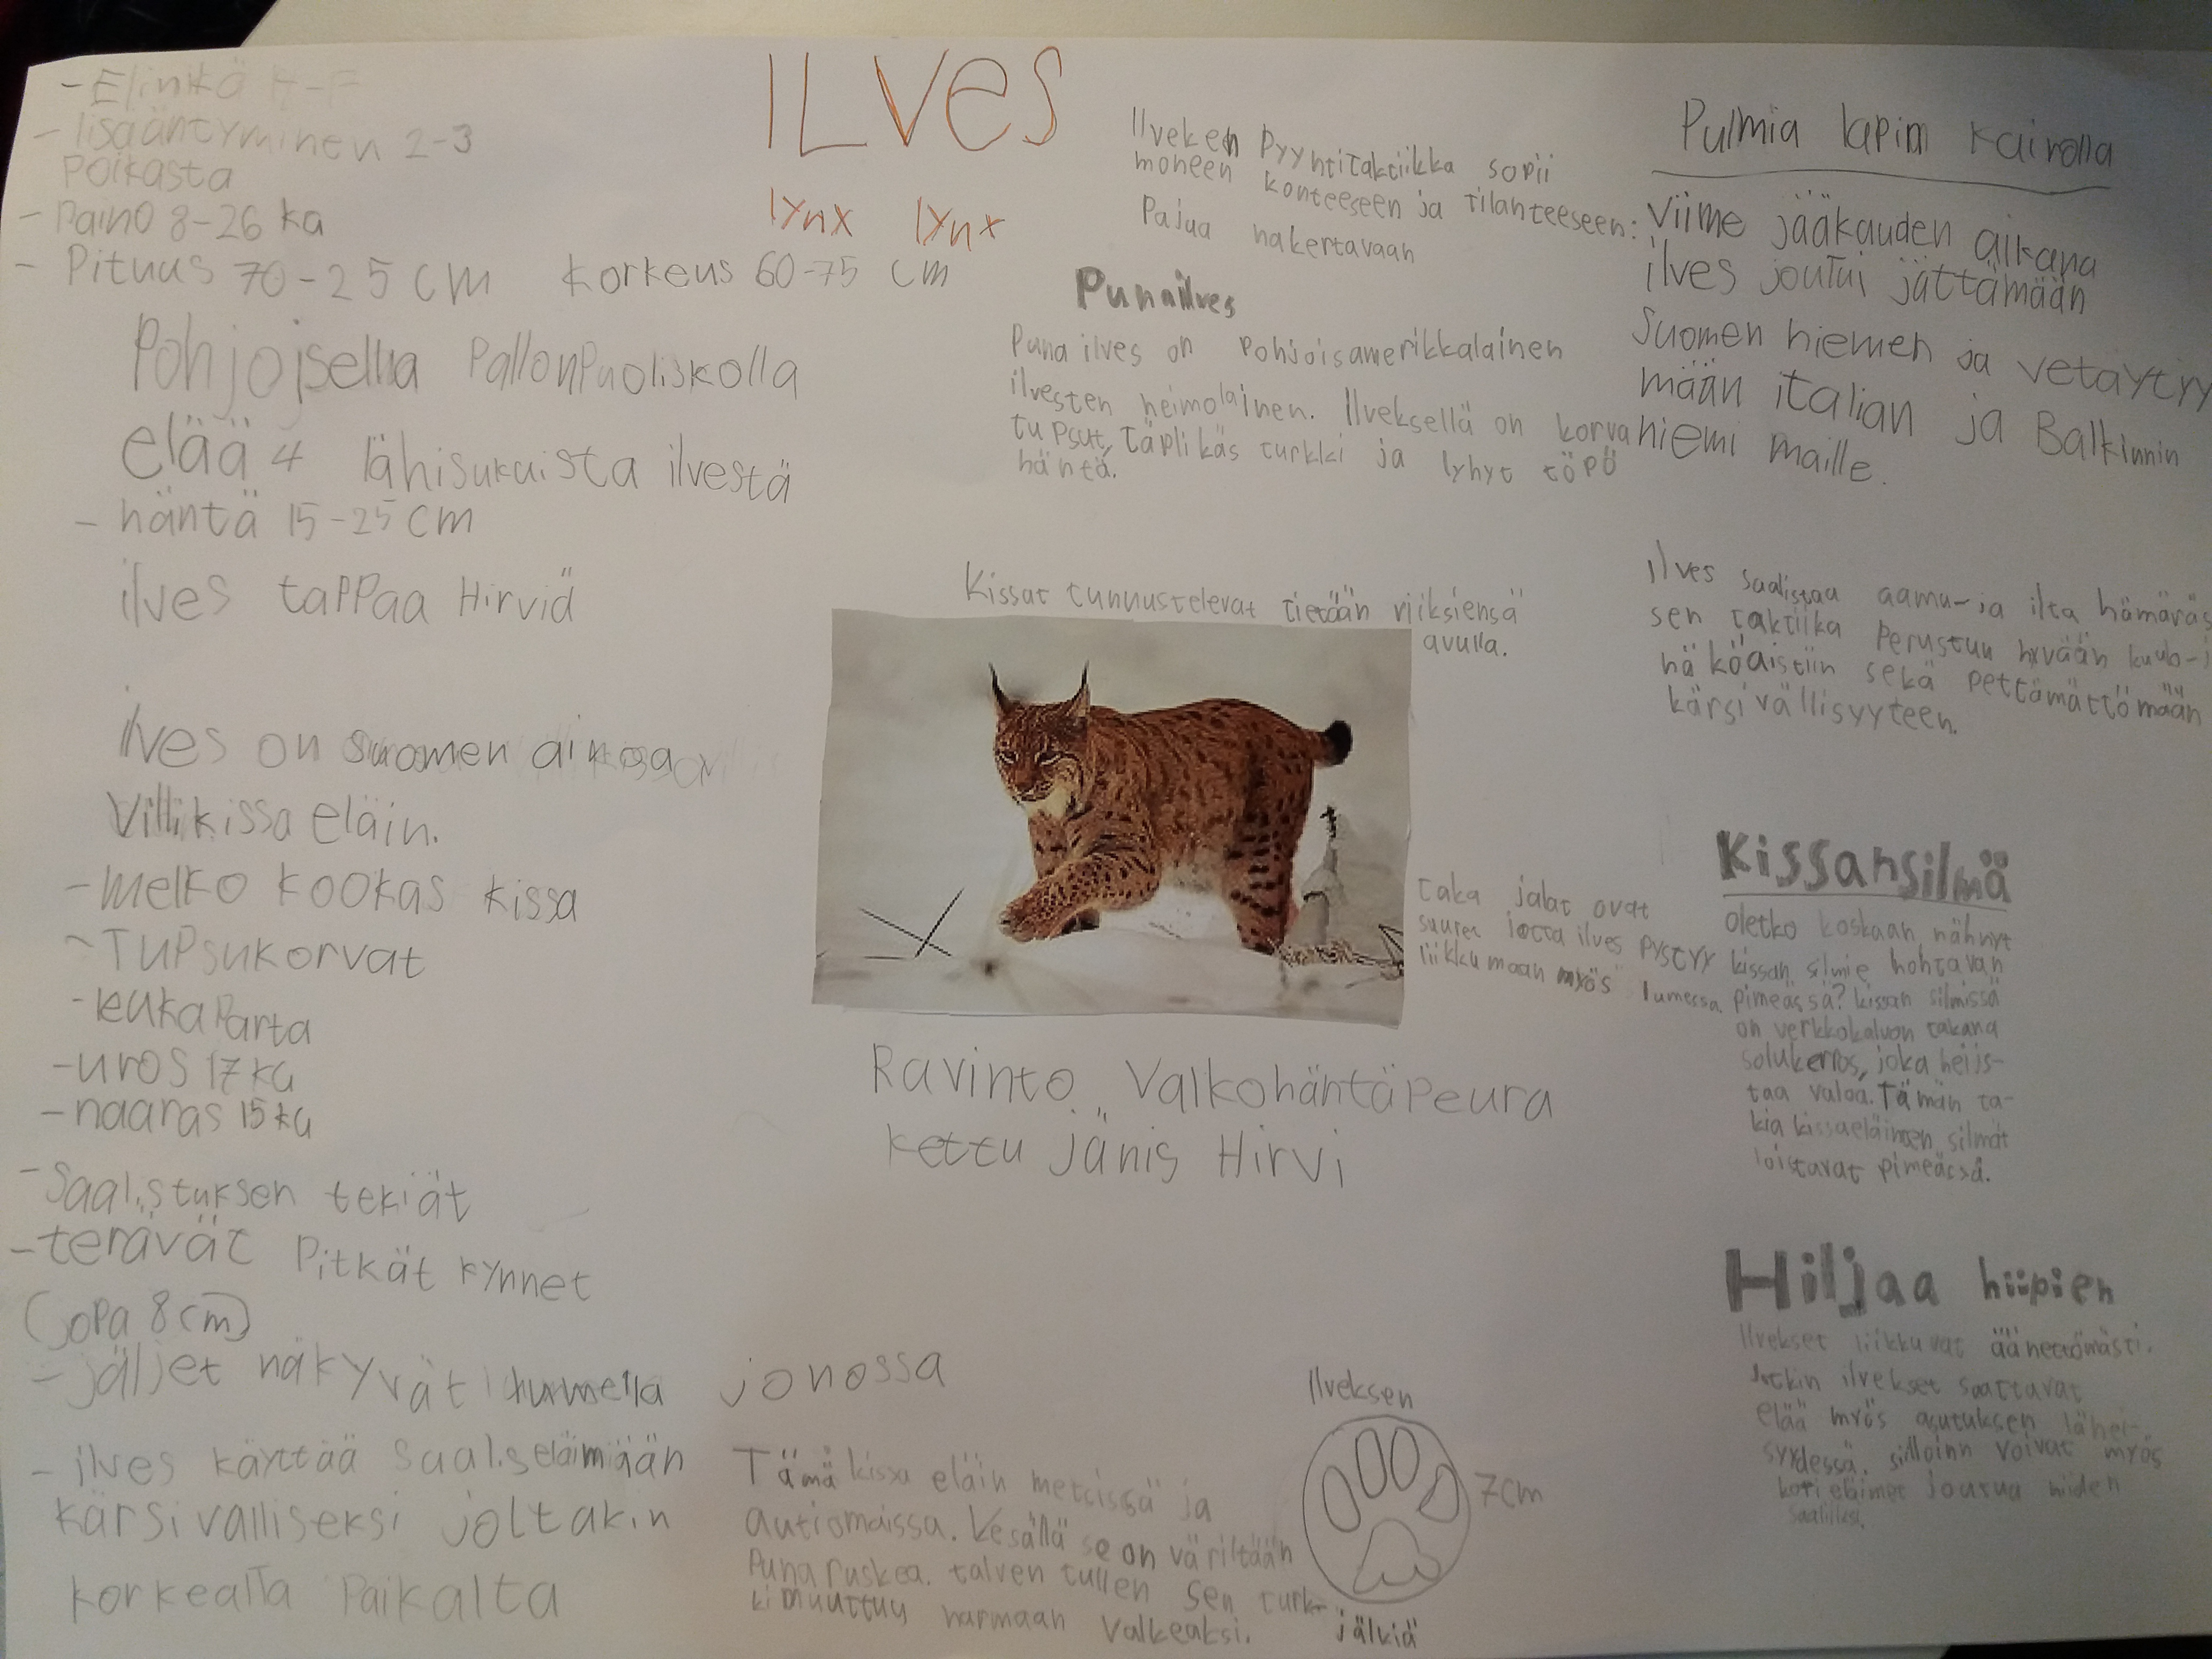 ILVes
lynx lynx
- Elinikä
- lisääntyminen 2-3
Poikasta
- Paino 8-26 kg
- Pituus 70-25 cm korkeus 60-75 cm
Pohjoisella PallonPuoliskolla
elää 4 lähisukuista ilvestä
- häntä 15-25 cm
ilves tappaa Hirviä
ilves on suomen ainoa
Villikissa eläin.
- melko kookas kissa
- Tupsukorvat
- leuka Parta
- uros 17 kg
- naaras 15 kg
- Saalistuksen tekiät
- terävät Pitkät kynnet
(jopa 8 cm)
- jäljet näkyvät lumella jonossa
- ilves käyttää Saaliseläimään
kärsivalliseksi joltakin
korkealta Paikalta
Ilveken Pyyntitaktiikka sopii
moneen konteeseen ja tilanteeseen:
Pajua nakertavaan
Punailves
Puna ilves on Pohjoisamerikkalainen
ilvesten heimolainen. Ilveksellä on korva
tupsut, täplikäs turkki ja lyhyt töpö
häntä.
Kissat tunnustelevat tietään viiksiensä
avulla.
taka jalat ovat
suuret jotta ilves pystyy
liikkumaan myös lumessa.
Ravinto Valkohäntäpeura
kettu jänis Hirvi
Tämä kissa eläin metsissä ja
autiomaissa. Kesällä se on väriltään
Puna ruskea. talven tullen sen turk-
ki muuttuu harmaan Valkeaksi.
Ilveksen
7cm
jälkiä
Pulmia lapin kairolla
Viime jääkauden aikana
ilves joutui jättämään
Suomen niemen ja vetäytyy
mään italian ja Balkinnin
niemi maille.
ilves saalistaa aamu-ja ilta hämäräs
sen taktiika Perustuu hyvään kuulo-
näköaistiin sekä pettämättömään
kärsivällisyyteen.
Kissansilmä
oletko koskaan nähnyt
kissan silmie hohtavan
pimeässä? kissan silmissä
on verkkokalvon takana
solukerros, joka heijs-
taa valoa. Tämän ta-
kia kissaeläimen silmät
loistavat pimeässä.
Hiljaa hiipien
Ilvekset liikkuvat äänettömästi.
Jotkin ilvekset saattavat
elää myös asutuksen lähei-
syydessä. silloinn voivat myös
koti eläimet joutua niiden
saaliiksi.